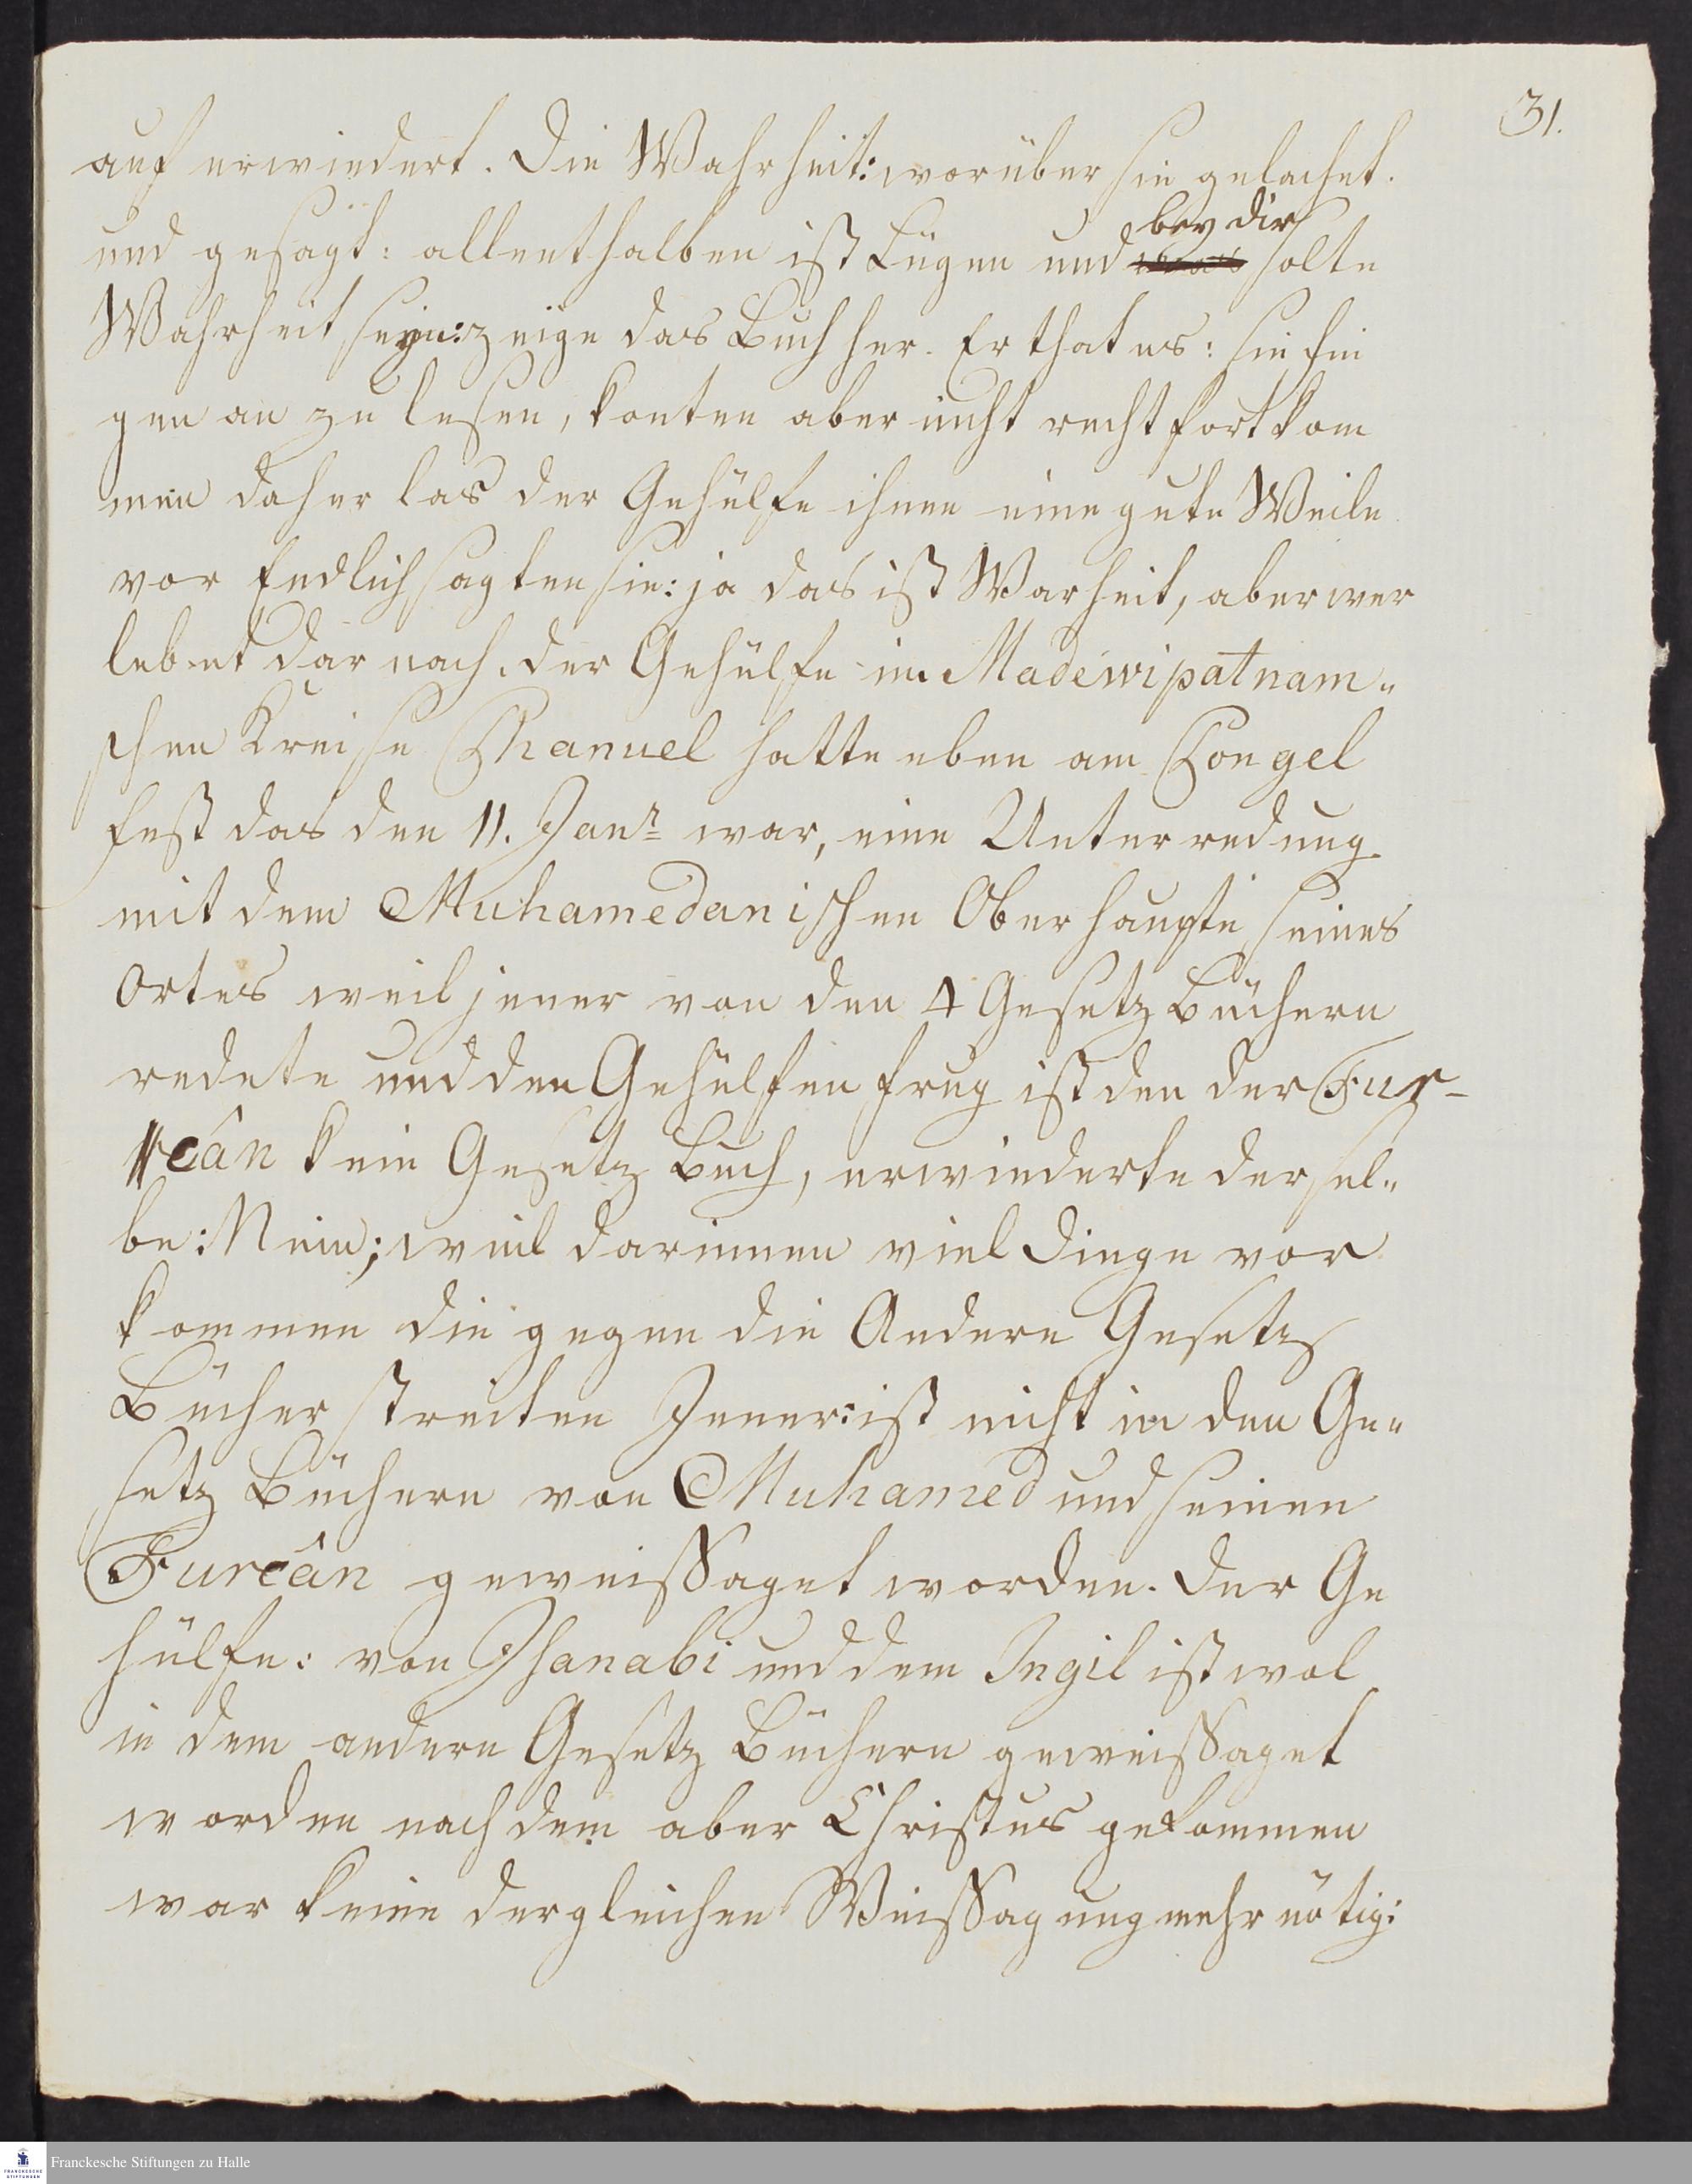 31.
auf erwiedert. Die Wahrheit: worüber sie gelachet.
und gesagt: allenthalben ist Lügen und bey dir solte
Wahrheit seyn: zeige das Buch her. Er that es: sie fin
gen an zu lesen, konten aber nicht recht fortkom
men daher las der Gehülfe ihnen eine gute Weile
vor Endlich sagten sie: ja das ist Warheit, aber wer
lebet darnach. der Gehülfe im Madewipatnam„
schen Kreise Manuel hatte eben am Pongel
fest das den 11. Janr war, eine Unterredung
mit dem Muhamedanischen Oberhaupte seines
Ortes weil jener von den 4 Gesetz Büchern
redete und den Gehülfen frug ist den der Fur-
cân kein Gesetz Buch, erwiederte dersel„
be: Nein; weil darinnen viel Dinge vor
kommen die gegen die Andere Gesetz
Bücher streiten Jener: ist nicht in den Ge„
setz Büchern von Muhamed und seinen
Furcân geweissaget worden. Der Ge
hülfe: von Jhanabi und dem Ingil ist wol
in dem andern Gesetz Büchern geweissaget
worden nach dem aber Christus gekommen
war keine dergleichen Weissagung mehr nötig:
Franckesche Stiftungen zu Halle
FRANCKESCHE
STIFTUNGEN